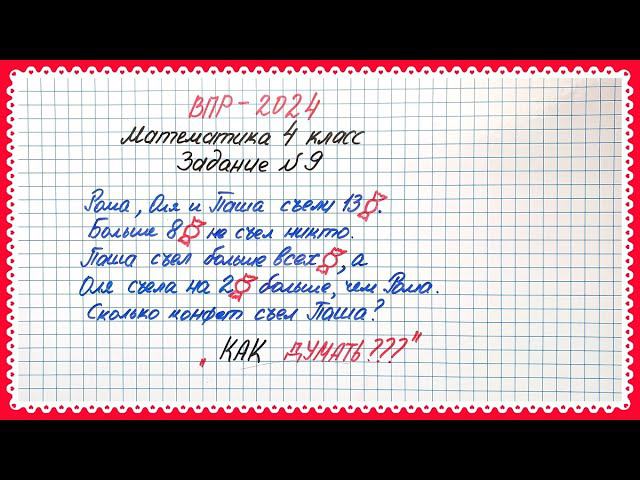 ВПР-2024
Математика 4 класс
Задание №9
Рома, Оля и Паша съели 13 .
Больше 8 не съел никто.
Паша съел больше всех , а
Оля съела на 2 больше, чем Рома.
Сколько конфет съел Паша?
„КАК ДУМАТЬ???"